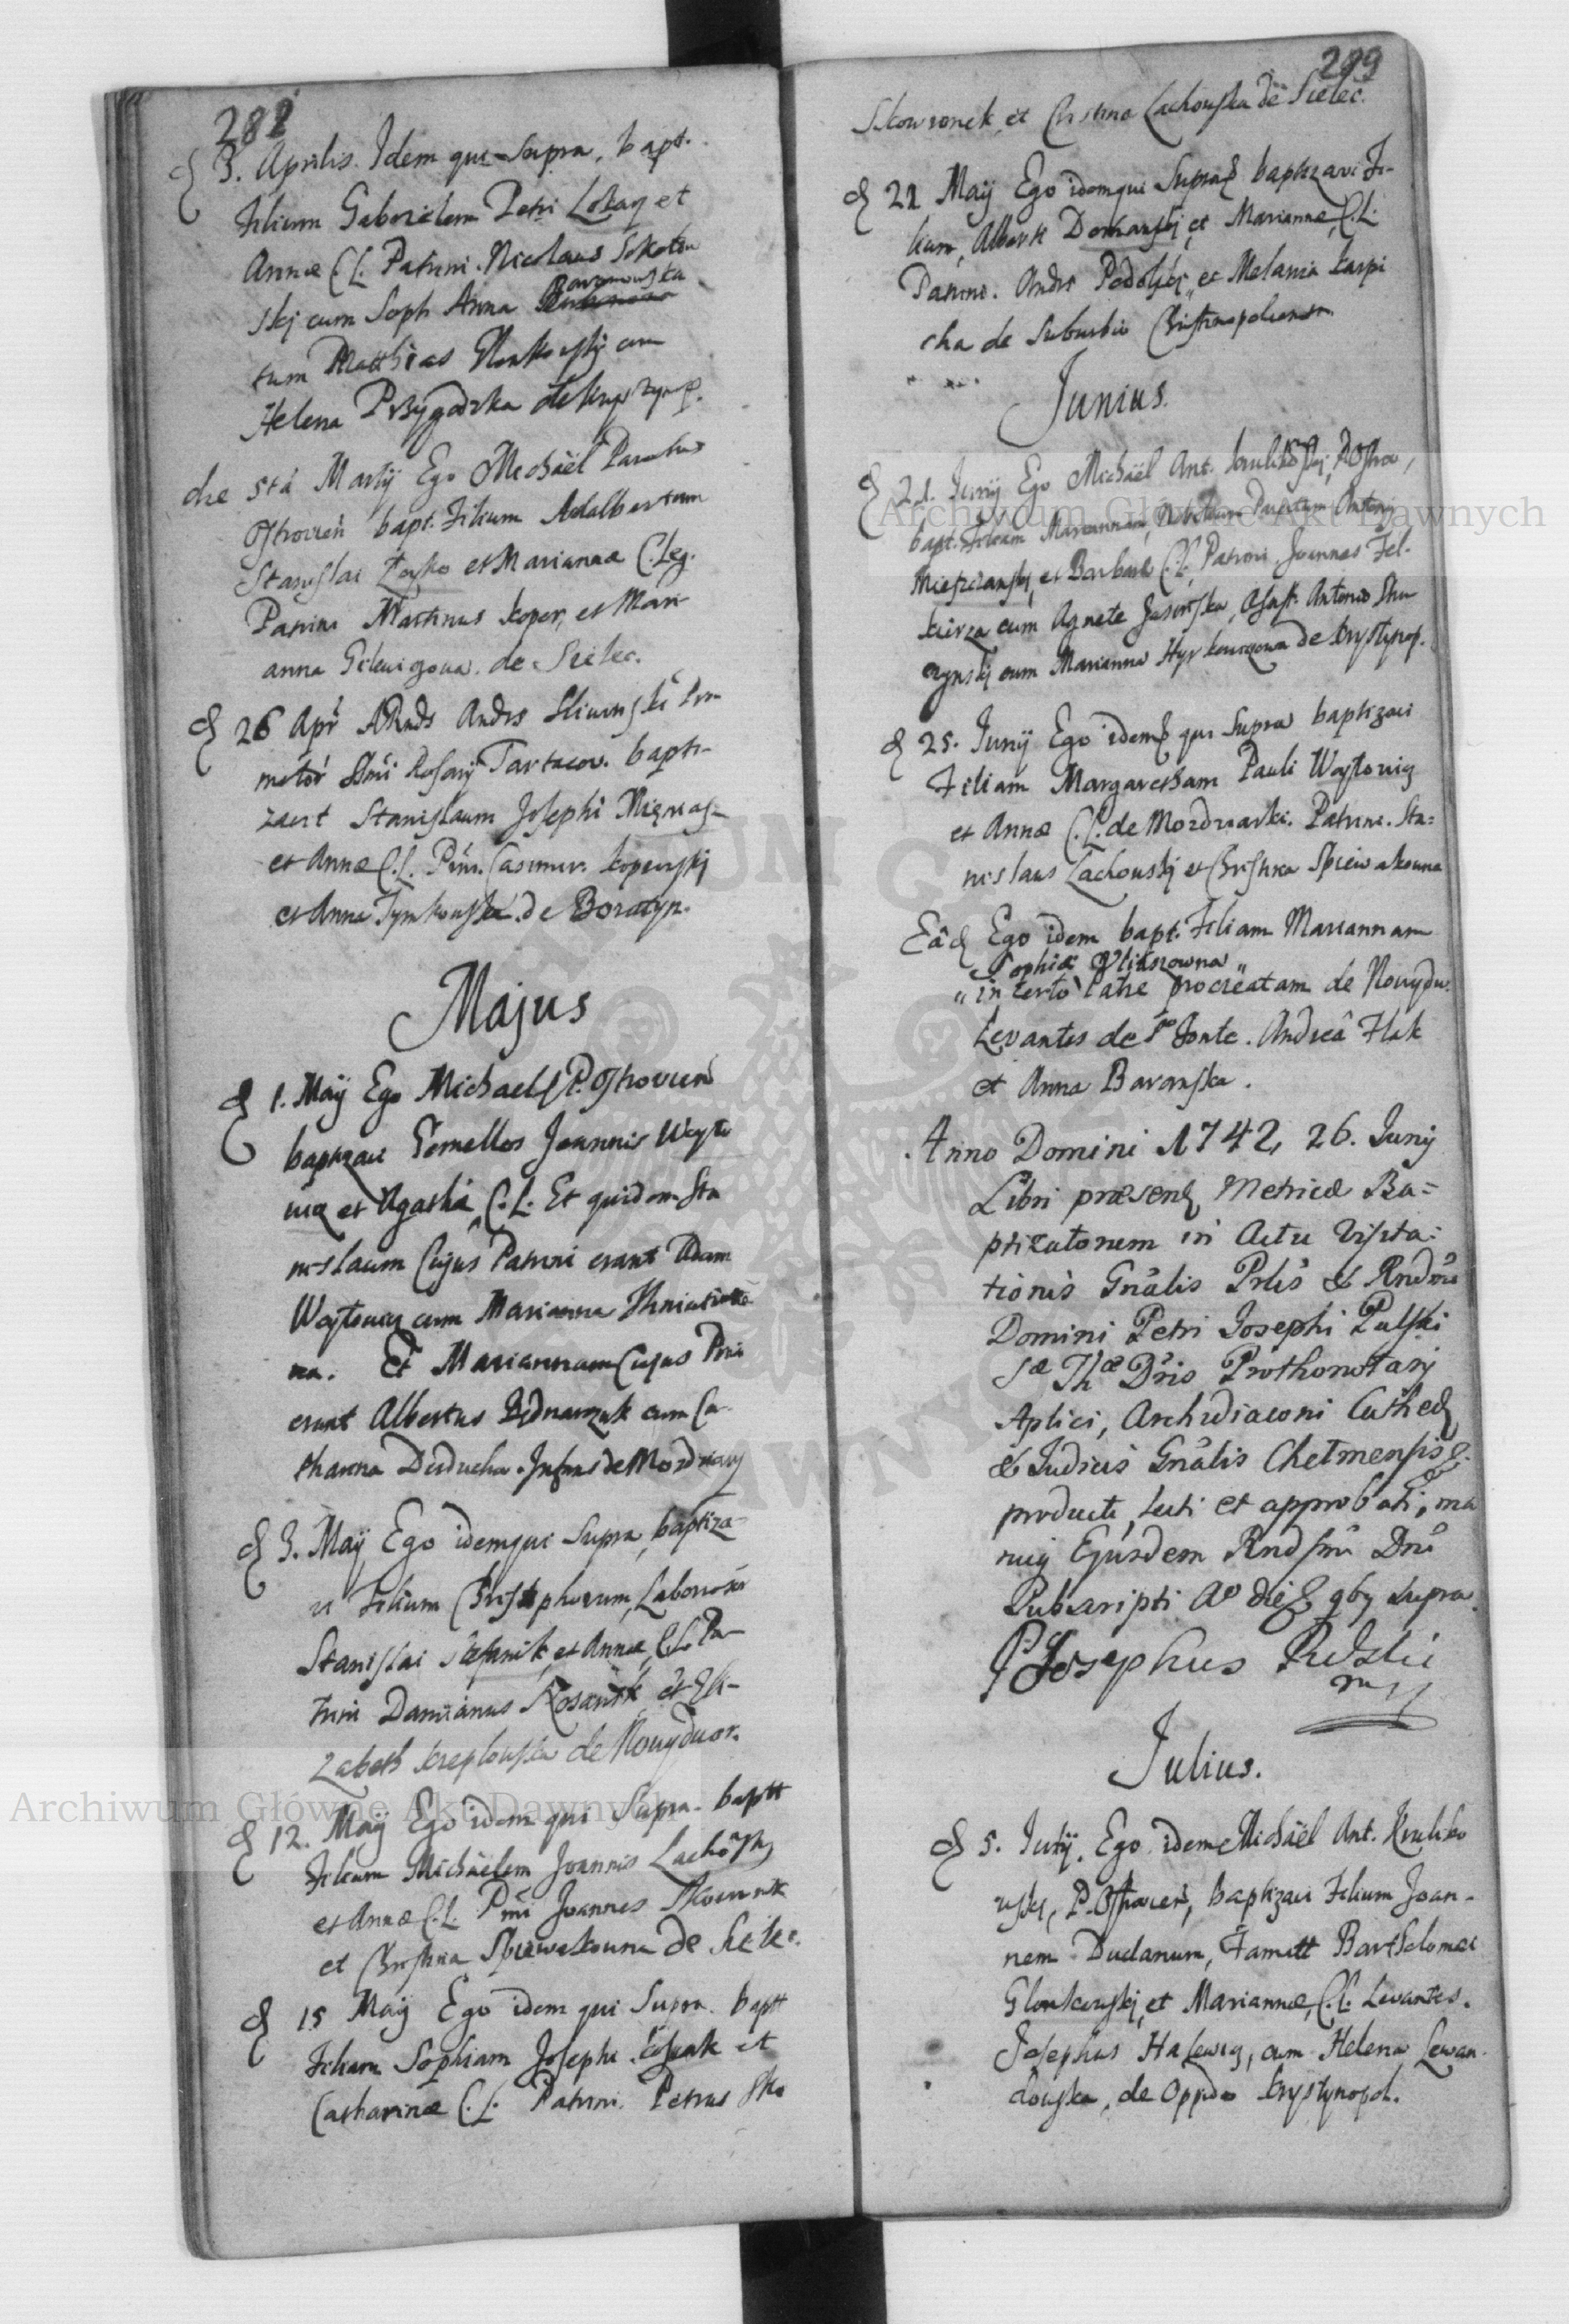 282
3. Aprilis. Idem qui Supra, bapt.
Filium Gabrielem Petri Lokaq et
Annæ C.L. Patrini. Nicolaus Sokolow
skj cum Soph Anna Baranowska
tum Matthias Glonkowskj cum
Helena Przygodzka
die 5ta Martij Ego Michaël Parochus
Ostrovien bapt. Filium Adalbertum
Stanislai Zosko et Mariannæ C. Leg.
Patrini Martinus Koper, et Mari
anna Gilewigowa. de Sielec.
26 Apr ARnds Andrs Sliwinski Pro
motor SSmi Rosarij Tartacov. bapti-
zavit Stanislaum Josephi
et Annæ C.L. Pnni. Casimir. Kopewskj
et Anna Tymkowska. de Boratyn.
Majus
1. Maij Ego Michael P. Ostrovien
baptizavi Gemellos Joannis Woyto
wicz et Agathæ C.L. Et quidem Sta
nislaum Cujus Patrini erant Adam
Woytowicz cum Marianna
na. Et Mariannam Cujus Pnni
erant Albertus Bednarzuk cum Ca-
tharina Duducha. de Mordwary
3. Maij Ego idem qui Supra, baptiza-
vi Filium Christophorum, Laboriosi
Stanislai Stefanik, et Annæ, C.L. Pa-
trini Damianus Kosanik et Eli-
zabeth de Nowydwor.
12. Maij Ego idem qui Supra. baptt
Filium Michaëlem Joannis Lachowsky
et Annæ C.L. Pnni Joannes Skowronk
et Christina Spiewakowna de Sielec.
15 Maij Ego idem qui Supra. baptt
Filiam Sophiam Josephi et
Catharinæ C.L. Patrini. Petrus Sko
289
Skowronek, et Christina Lachowska de Sielec.
21 Maij Ego idem qui Supra baptizavi Fi-
lium, Alberti Domanskj et Mariannæ, C.L.
Patrini. Andrs Podolskj, et Melania Karpi
cha de Suburbio Christinopoliensi
Junius.
21. Junij Ego Michaël Ant. Krulikowskj, P. Ostro,
bapt. Filiam Mariannam, Antonij
Mieszczanskj, et Barbaræ C.L. Patrini Joannes Fel-
kierza cum Agnete Jasinska, Assist. Antonio Shu
rzynskj cum Marianna Hyrkowiczowa de Krystynop.
25. Junij Ego idem qui Supra baptizavi
Filiam Margaretham Pauli Woytowicz
et Annæ C.L. de Mordwarki. Patrini. Sta=
nislaus Lachowskj et Christina Spiewakowna
Eâd Ego idem bapt. Filiam Mariannam
Sophiæ
in certo Patre procreatam de Nowydw.
Levantes de S. Fonte. Andrea Flak
et Anna Baranska.
Anno Domini 1742, 26. Junij
Libri præsens Metricæ Ba=
ptizatorum in Actu Visita=
tionis Gnâlis Prlis & Rndmi
Domini Petri Josephi Pulski
Sæ Thæ Dris Prothonotarij
Aplici, Archidiaconi Cathed
& Judicis Gnâlis Chelmensis
producti, lecti et approbati, ma
nuq Ejusdem Rndssmi Dni
Subscripti Ao die quibus supra.
P Josephus Pulski
mp
Julius.
5. Julij. Ego idem Michaël Ant. Kruliko
wskj, P. Ostrovien, baptizavi Filium Joan-
nem Dudanum, Famatt Bartholomæi
Glonkowskj, et Mariannæ, C.L. Levantes.
Josephus Halewicz, cum Helena Lewan-
dowska, de Oppido Krystynopol.
Archiwum Główne Akt Dawnych
Archiwum Główne Akt Dawnych